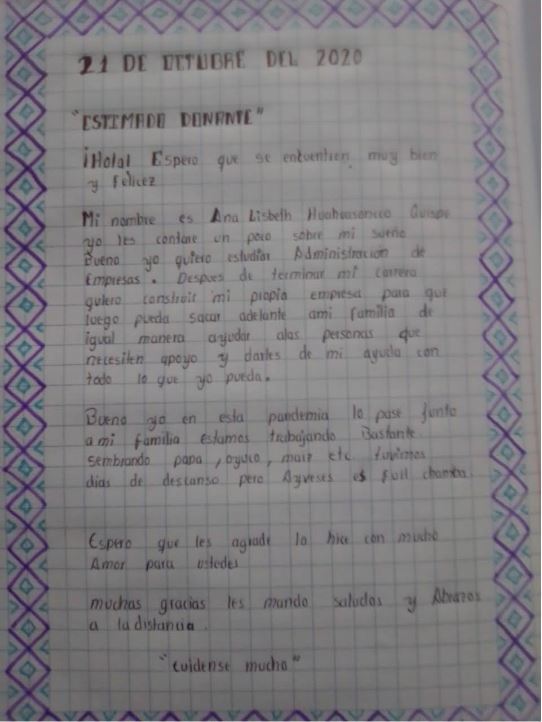 21 DE OCTUBRE DEL 2020
"ESTIMADO DONANTE"
¡Hola! Espero que se entuentren muy bien
y felicez
Mi nombre es Ana Lisbeth Quispe
yo les contare un poco sobre mi sueño
Bueno yo quiero estudiar Administración de
Empresas. Despues de terminar mi carrera
quiero construir mi propia empresa para que
luego pueda sacar adelante ami familia de
igual manera ayudar alas personas que
necesiten apoyo y darles de mi ayuda con
todo lo que yo pueda.
Bueno yo en esta pandemia lo pase junto
a mi familia estamos trabajando Bastante
sembrando papa, oyuco, maiz etc. tubimos
dias de descanso pero Ayveses es full chamba.
Espero que les agrade lo hice con mucho
Amor para ustedes
muchas gracias les mando saludos y Abrazos
a la distancia.
"cuidense mucho"